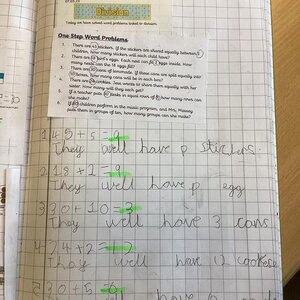 07.03.23
Division
Today we have solved word problems linked to division.
One Step Word Problems
1. There are 45 stickers. If the stickers are shared equally between 5
children, how many stickers will each child have?
2. There are 18 bird's eggs. Each nest can fit eggs inside. How
many nests can the 18 eggs fill?
3. There are 30 cans of lemonade. If these cans are split equally into
10 boxes, how many cans will be in each box?
4. There are 24 cookies. Jess wants to share them equally with her
sister. How many will they each get?
5. If a teacher puts 30 books in equal rows of 5, how many rows can
she make?
6. If children perform in the music program, and Mrs.
puts them in groups of ten, how many groups can she make?
1 45 ÷ 5 = 9
They well have p stickers.
2 18 ÷ 1 = 9
They well have p egg
3 30 ÷ 10 = 3
They well have 3 cans
4 24 ÷ 2 = 12
They well have 12 cookese
5 30 ÷ 5 = 6
They well have 6